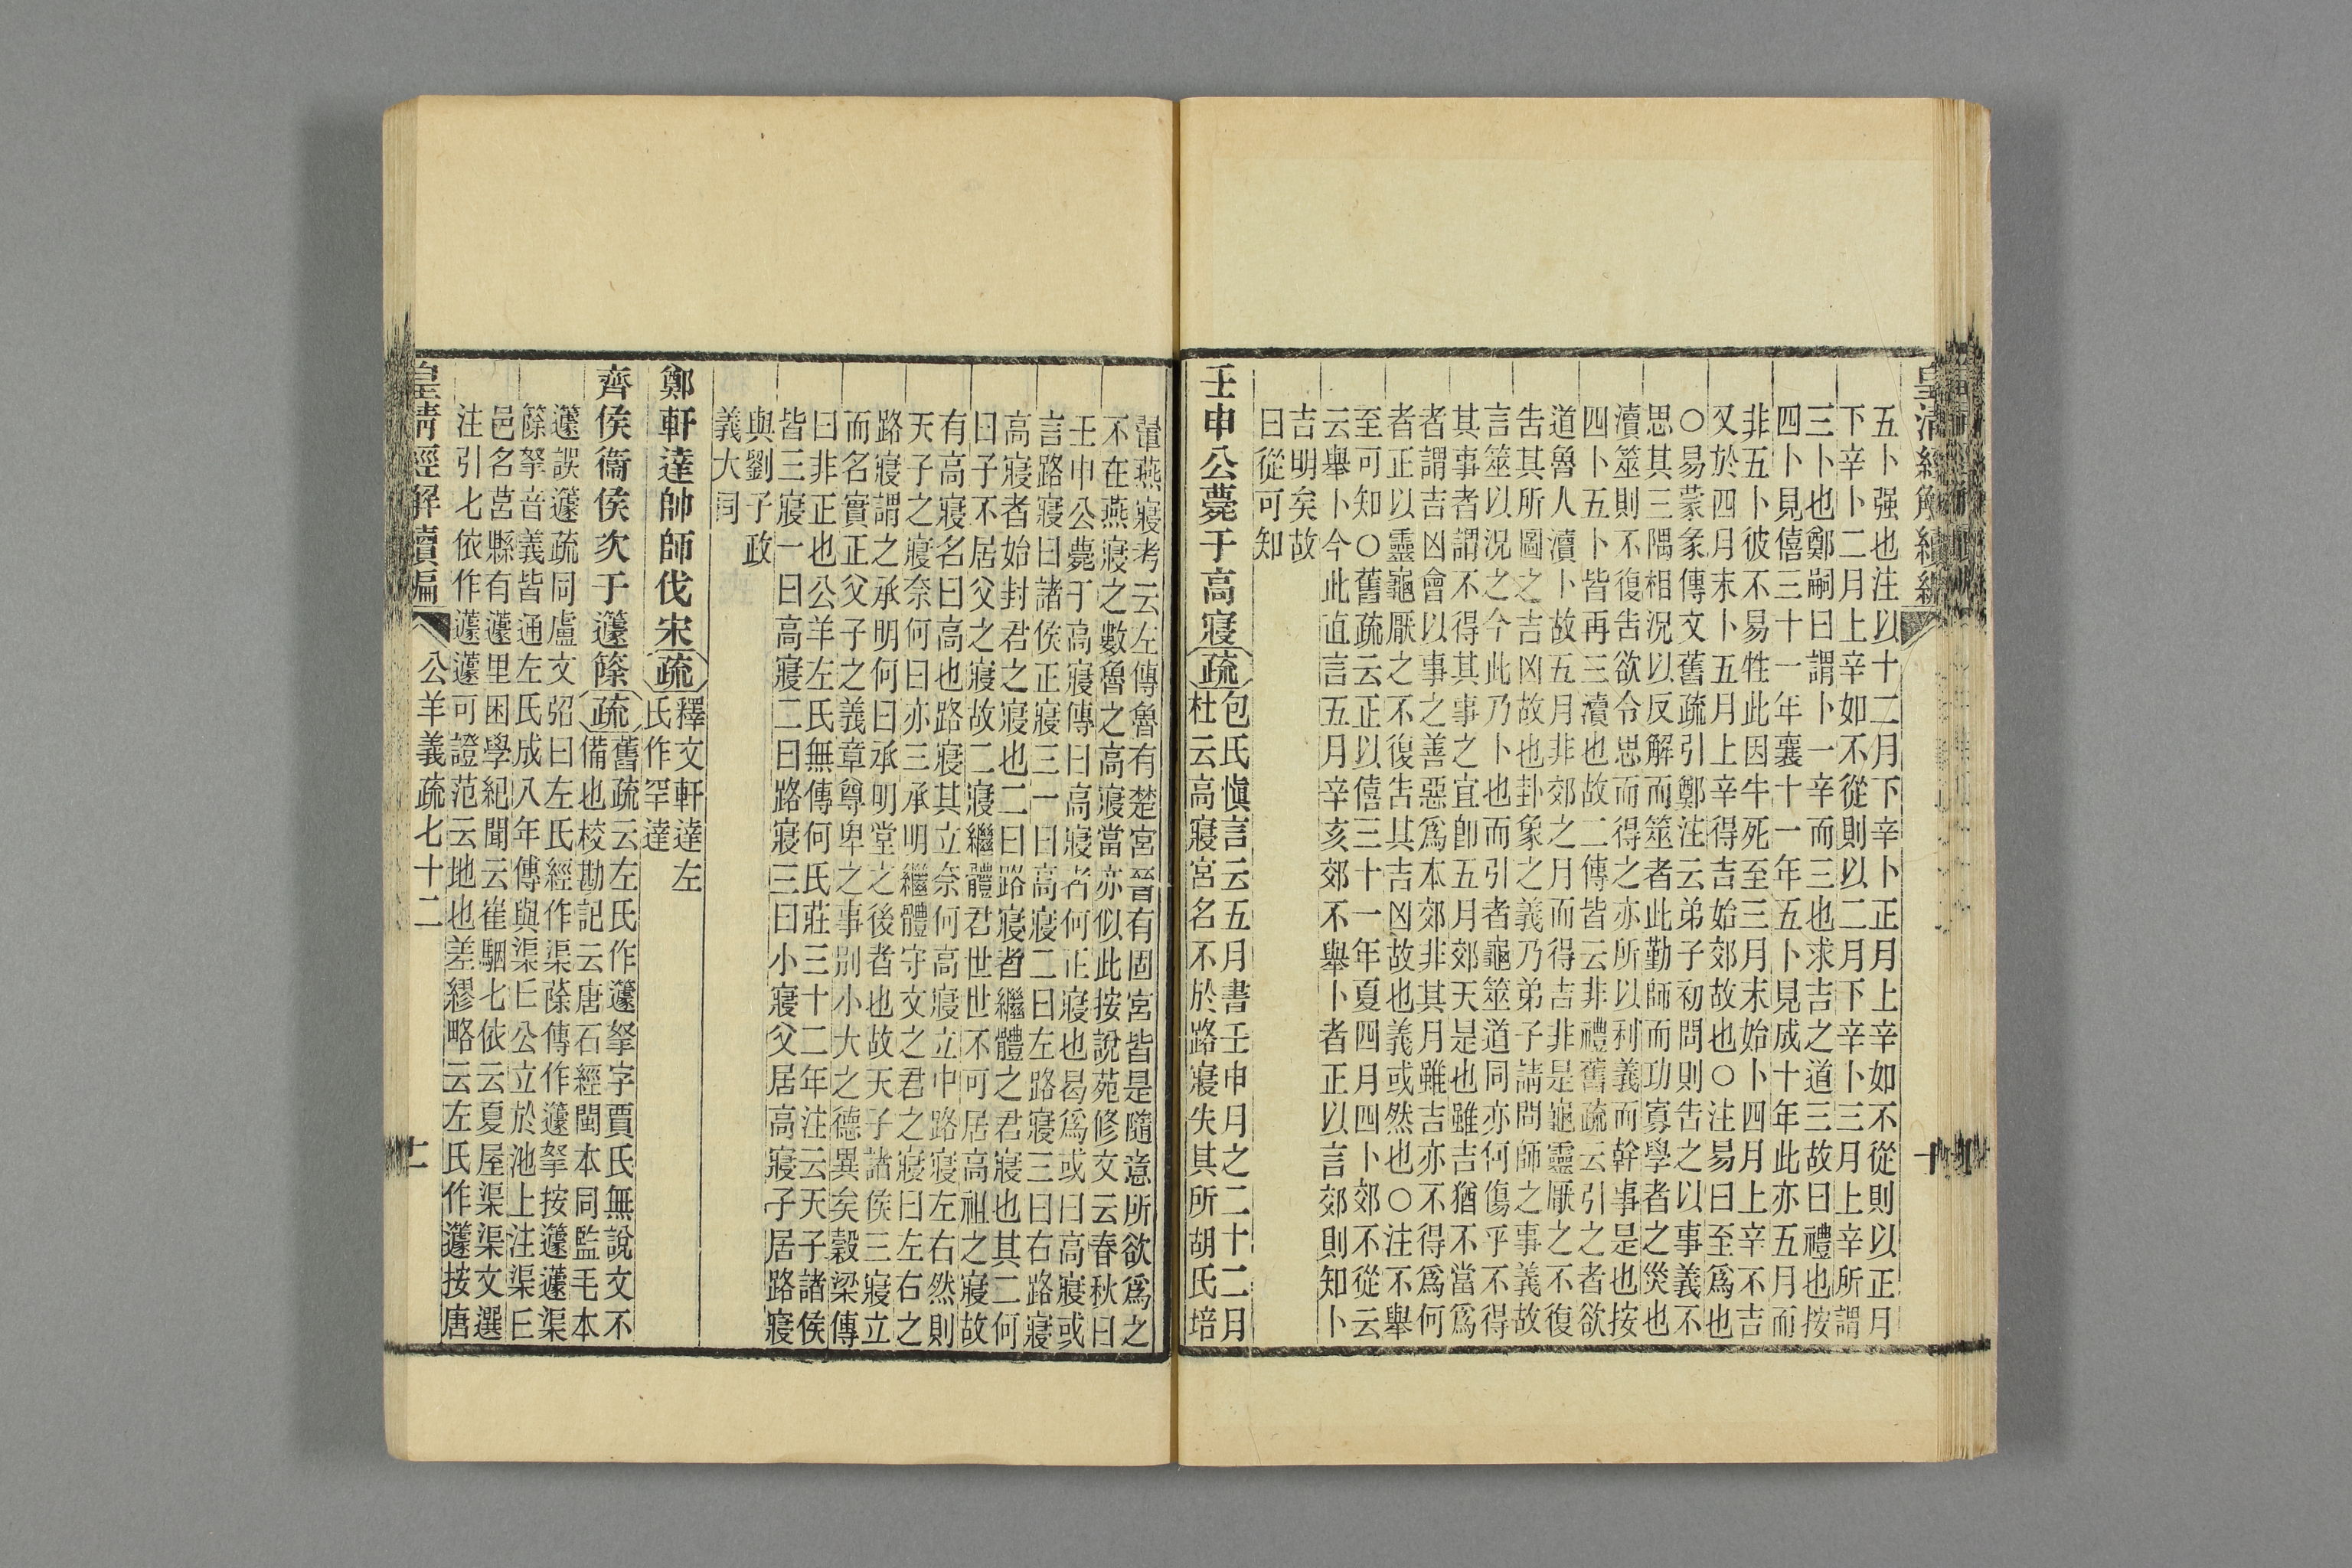 皇清經解續編
十
五卜强也注以十二月下辛卜正月上辛如不從則以正月
下辛卜二月上辛如不從則以二月下辛卜三月上辛所謂
三卜也鄭嗣曰謂卜一辛而三也求吉之道三故曰禮也按
四卜見僖三十一年襄十一年五卜見成十年此亦五月而
非五卜彼不易牲此因牛死至三月末始卜四月上辛不吉
又於四月末卜五月上辛得吉始郊故也○注易曰至爲也
○易蒙彖傳文舊疏引鄭注云弟子初問則告之以事義不
思其三隅相況以反解而筮者此勤師而功寡學者之災也
瀆筮則不復告欲令思而得之亦所以利義而幹事是也按
四卜五卜皆再三瀆也故二傳皆云非禮舊疏云引之者欲
道魯人瀆卜故五月非郊之月而得吉非是龜靈厭之不復
告其所圖之吉凶故也卦象之義乃弟子請問師之事義故
言筮以況之今此乃卜也而引者龜筮道同亦何傷乎不得
其事者謂不得其事之宜卽五月郊天是也雖吉猶不當爲
者謂吉凶會以事之善惡爲本郊非其月雖吉亦不得爲何
者正以靈龜厭之不復告其吉凶故也義或然也○注不舉
至可知○舊疏云正以僖三十一年夏四月四卜郊不從云
云舉卜今此直言五月辛亥郊不舉卜者正以言郊則知卜
吉明矣故
曰從可知
壬申公薨于高寢疏包氏愼言云五月書壬申月之二十二月
杜云高寢宮名不於路寢失其所胡氏培
翬燕寢考云左傳魯有楚宮晉有固宮皆是隨意所欲爲之
不在燕寢之數魯之高寢當亦似此按說苑修文云春秋曰
壬申公薨于高寢傳曰高寢者何正寢也曷爲或曰高寢或
言路寢曰諸侯正寢三一曰高寢二曰左路寢三曰右路寢
高寢者始封君之寢也二曰路寢者繼體之君寢也其二何
曰子不居父之寢故二寢繼體君世世不可居高祖之寢故
有高寢名曰高也路寢其立奈何高寢立中路寢左右然則
天子之寢奈何曰亦三承明繼體守文之君之寢曰左右之
路寢謂之承明何曰承明堂之後者也故天子諸侯三寢立
而名實正父子之義章尊卑之事別小大之德異矣穀梁傳
曰非正也公羊左氏無傳何氏莊三十二年注云天子諸侯
皆三寢一曰高寢二曰路寢三曰小寢父居高寢子居路寢
與劉子政
義大同
鄭軒達帥師伐宋疏釋文軒達左
氏作罕達
齊侯衞侯次于籧篨疏舊疏云左氏作籧挐字賈氏無說文不
備也校勘記云唐石經閩本同監毛本
籧誤蘧疏同盧文弨曰左氏經作渠蒢傳作籧挐按籧蘧渠
篨挐音義皆通左氏成八年傳與渠丘公立於池上注渠丘
邑名莒縣有蘧里困學紀聞云崔駰七依云夏屋渠渠文選
注引七依作蘧蘧可證范云地也差繆略云左氏作籧按唐
皇清經解續編
公羊義疏七十二